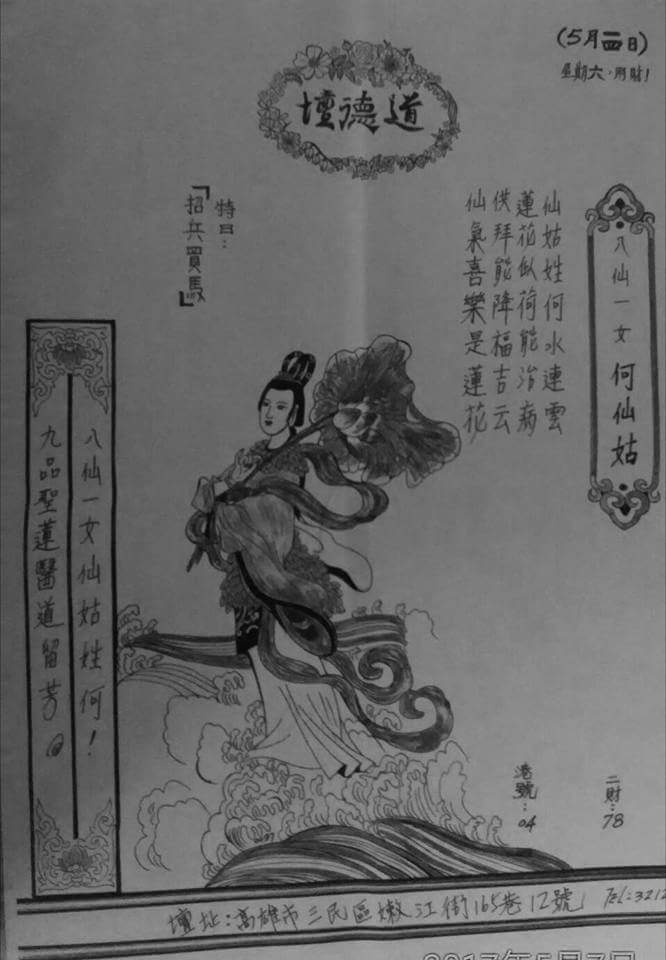 (5月 日)
星期六
道德壇
八仙一女 何仙姑
仙姑姓何水連雲
蓮花似荷能治病
供拜能降福吉云
仙氣喜樂是蓮花
特日:
「招兵買馬」
八仙一女仙姑姓何!
九品聖蓮醫道留芳。
二財:78
港號:04
壇址:高雄市三民區嫩江街165巷12號 Tel:3212
2017年5月7日